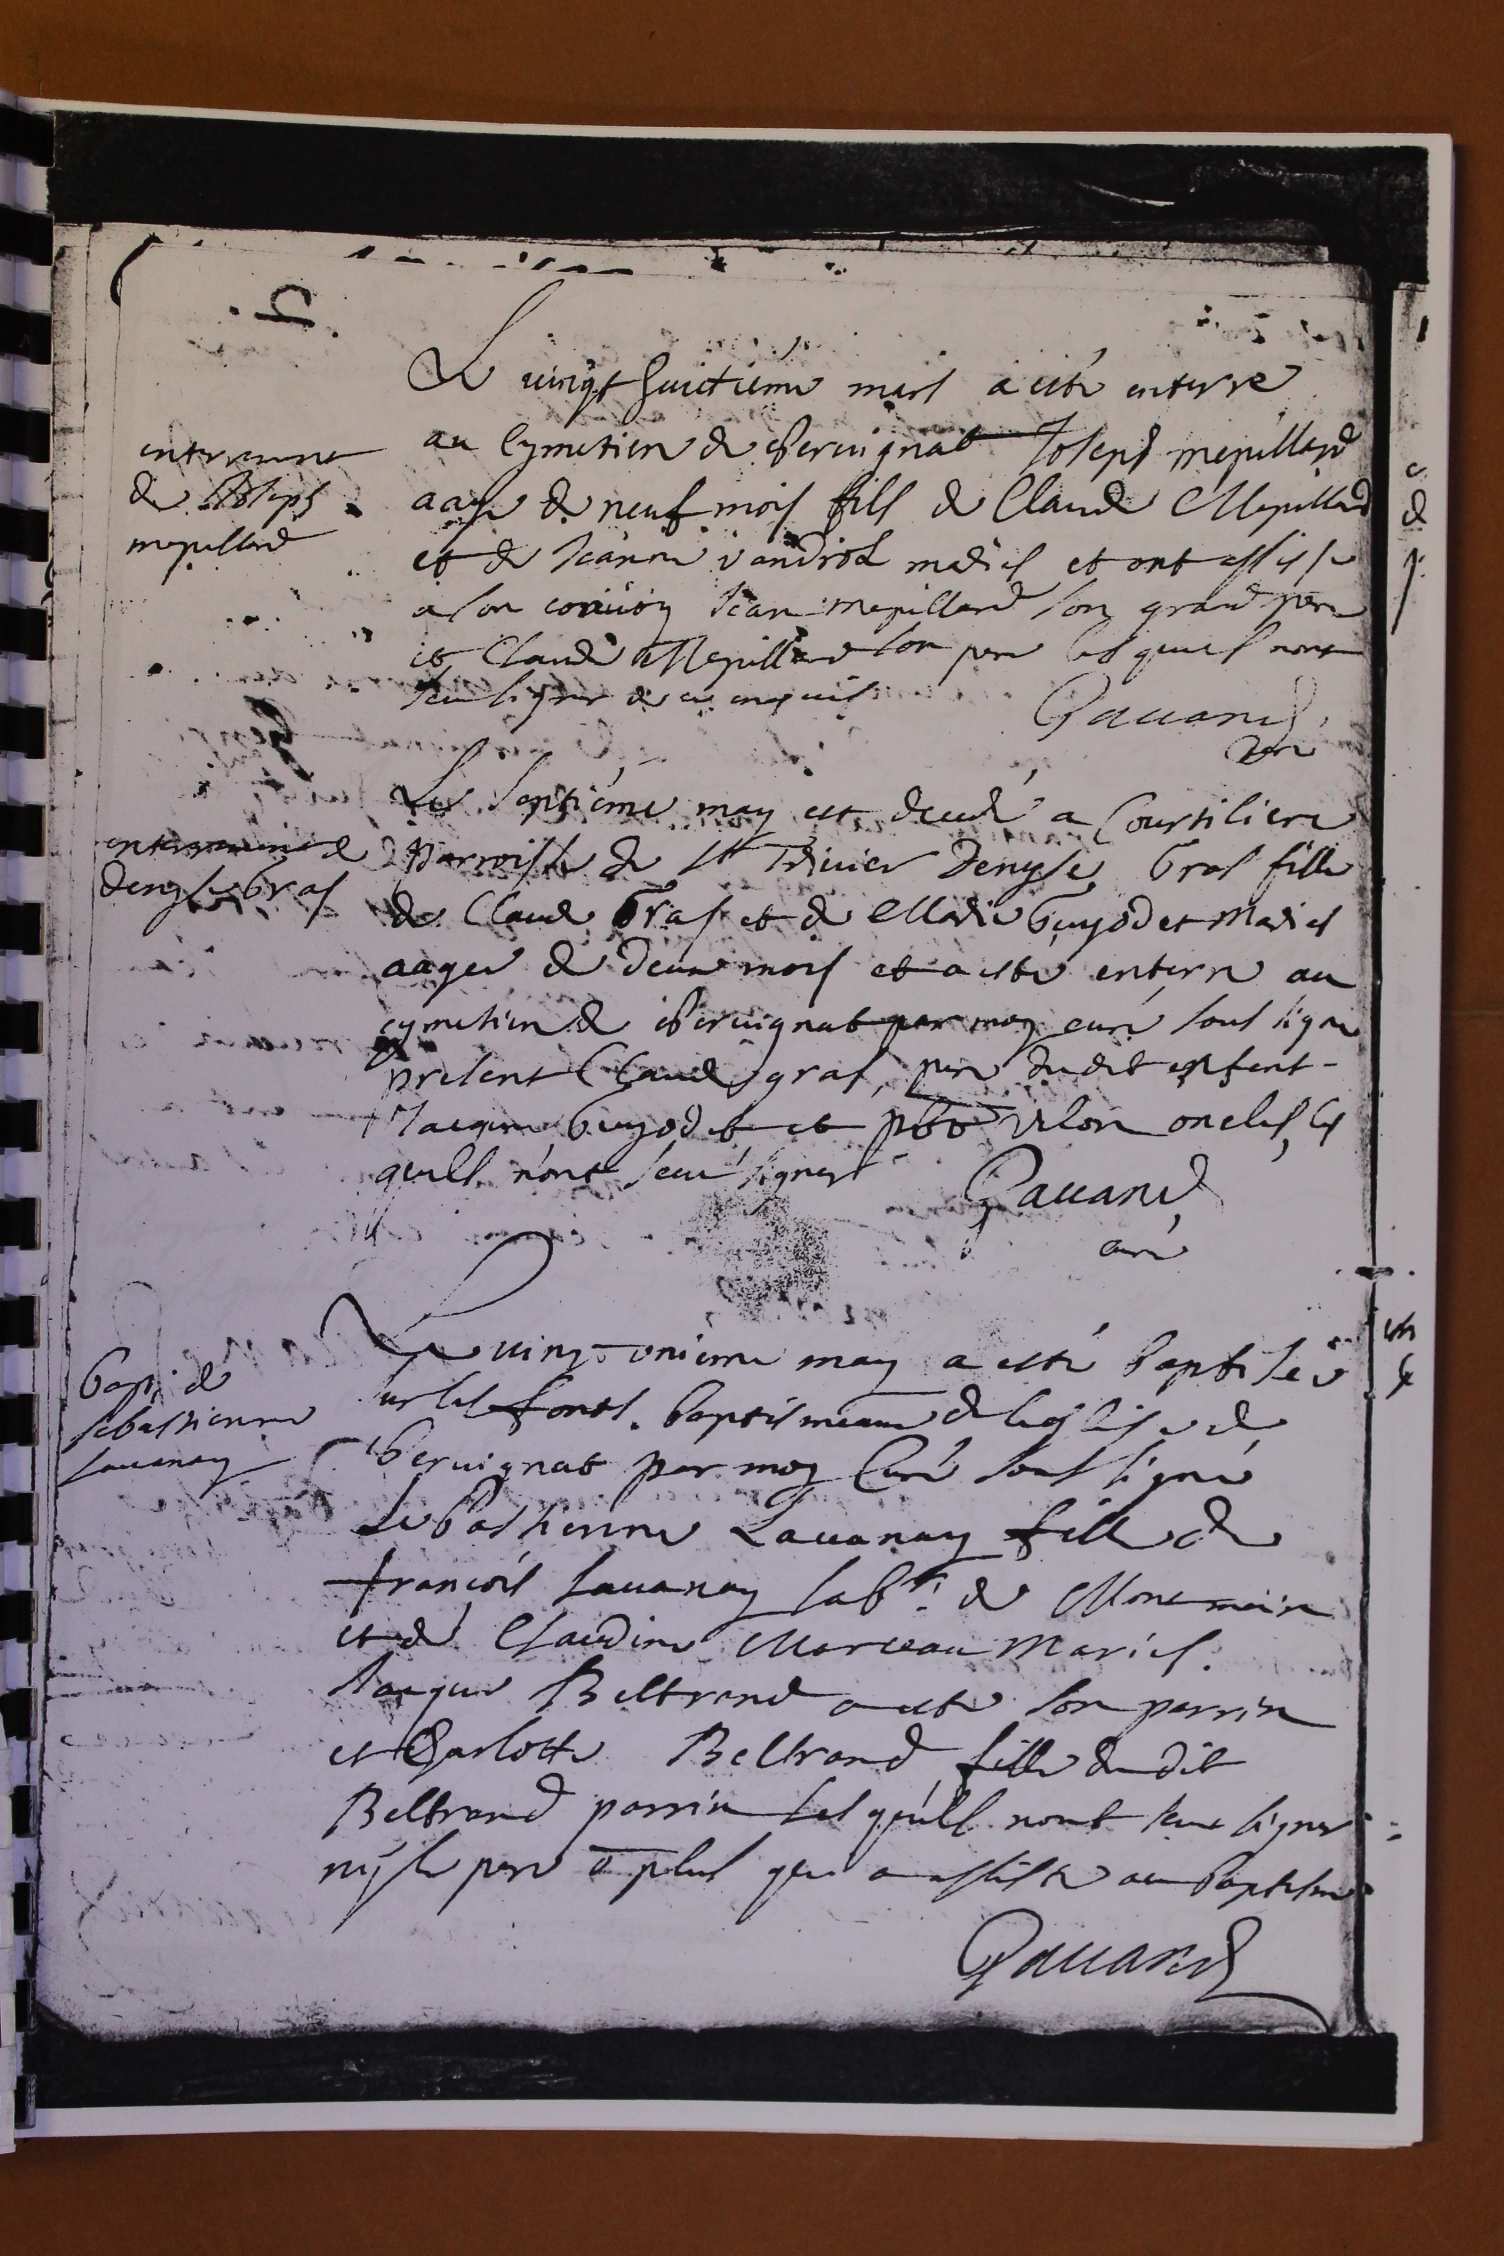 Le vingt huictieme mars a esté enterre
au Cymetiere de Beruignat Joseph mepillard
aage de neuf mois fils de Claude Mepillard
et de Jeanne vandrot mariés et ont assiste
a son conuoy Jean mepillard son grand pere
et Claude Mepillard son pere lesquels nont
sceu signer de ce enquis
Gauand
Cure
enterrement
de Joseph
mepillard
Le septiéme may est decedé a Courtiliere
Parroisse de St Triuier Denyse Gras fille
de Claude Gras et de Marie Guyodet Mariés
aagee de deux mois et a este enterre au
cymetiere de Beruignat par moy curé soubsigne
present Claude gras, pere dudit enfent
Jacque Guyodet et oncles, les
quells n'ont sceu signer
Gauand
curé
enterrement de
denyse Gras
Le vingt-unieme may a esté baptisée
sur les fonts baptismeaux de leglise de
Beruignat par moy Curé soubsigné
Sebastienne Lauanay fille de
françois Lauanay labr. de
et de Claudine Morceau Mariés.
Jacque Beltrand a este son parrin
et Charlotte Beltrand fille du dit
Beltrand parrin lesquells nont sceu signer
ny le pere plus que a assiste au Baptesme
Gauand
bap. de
sebastienne
Lauanay